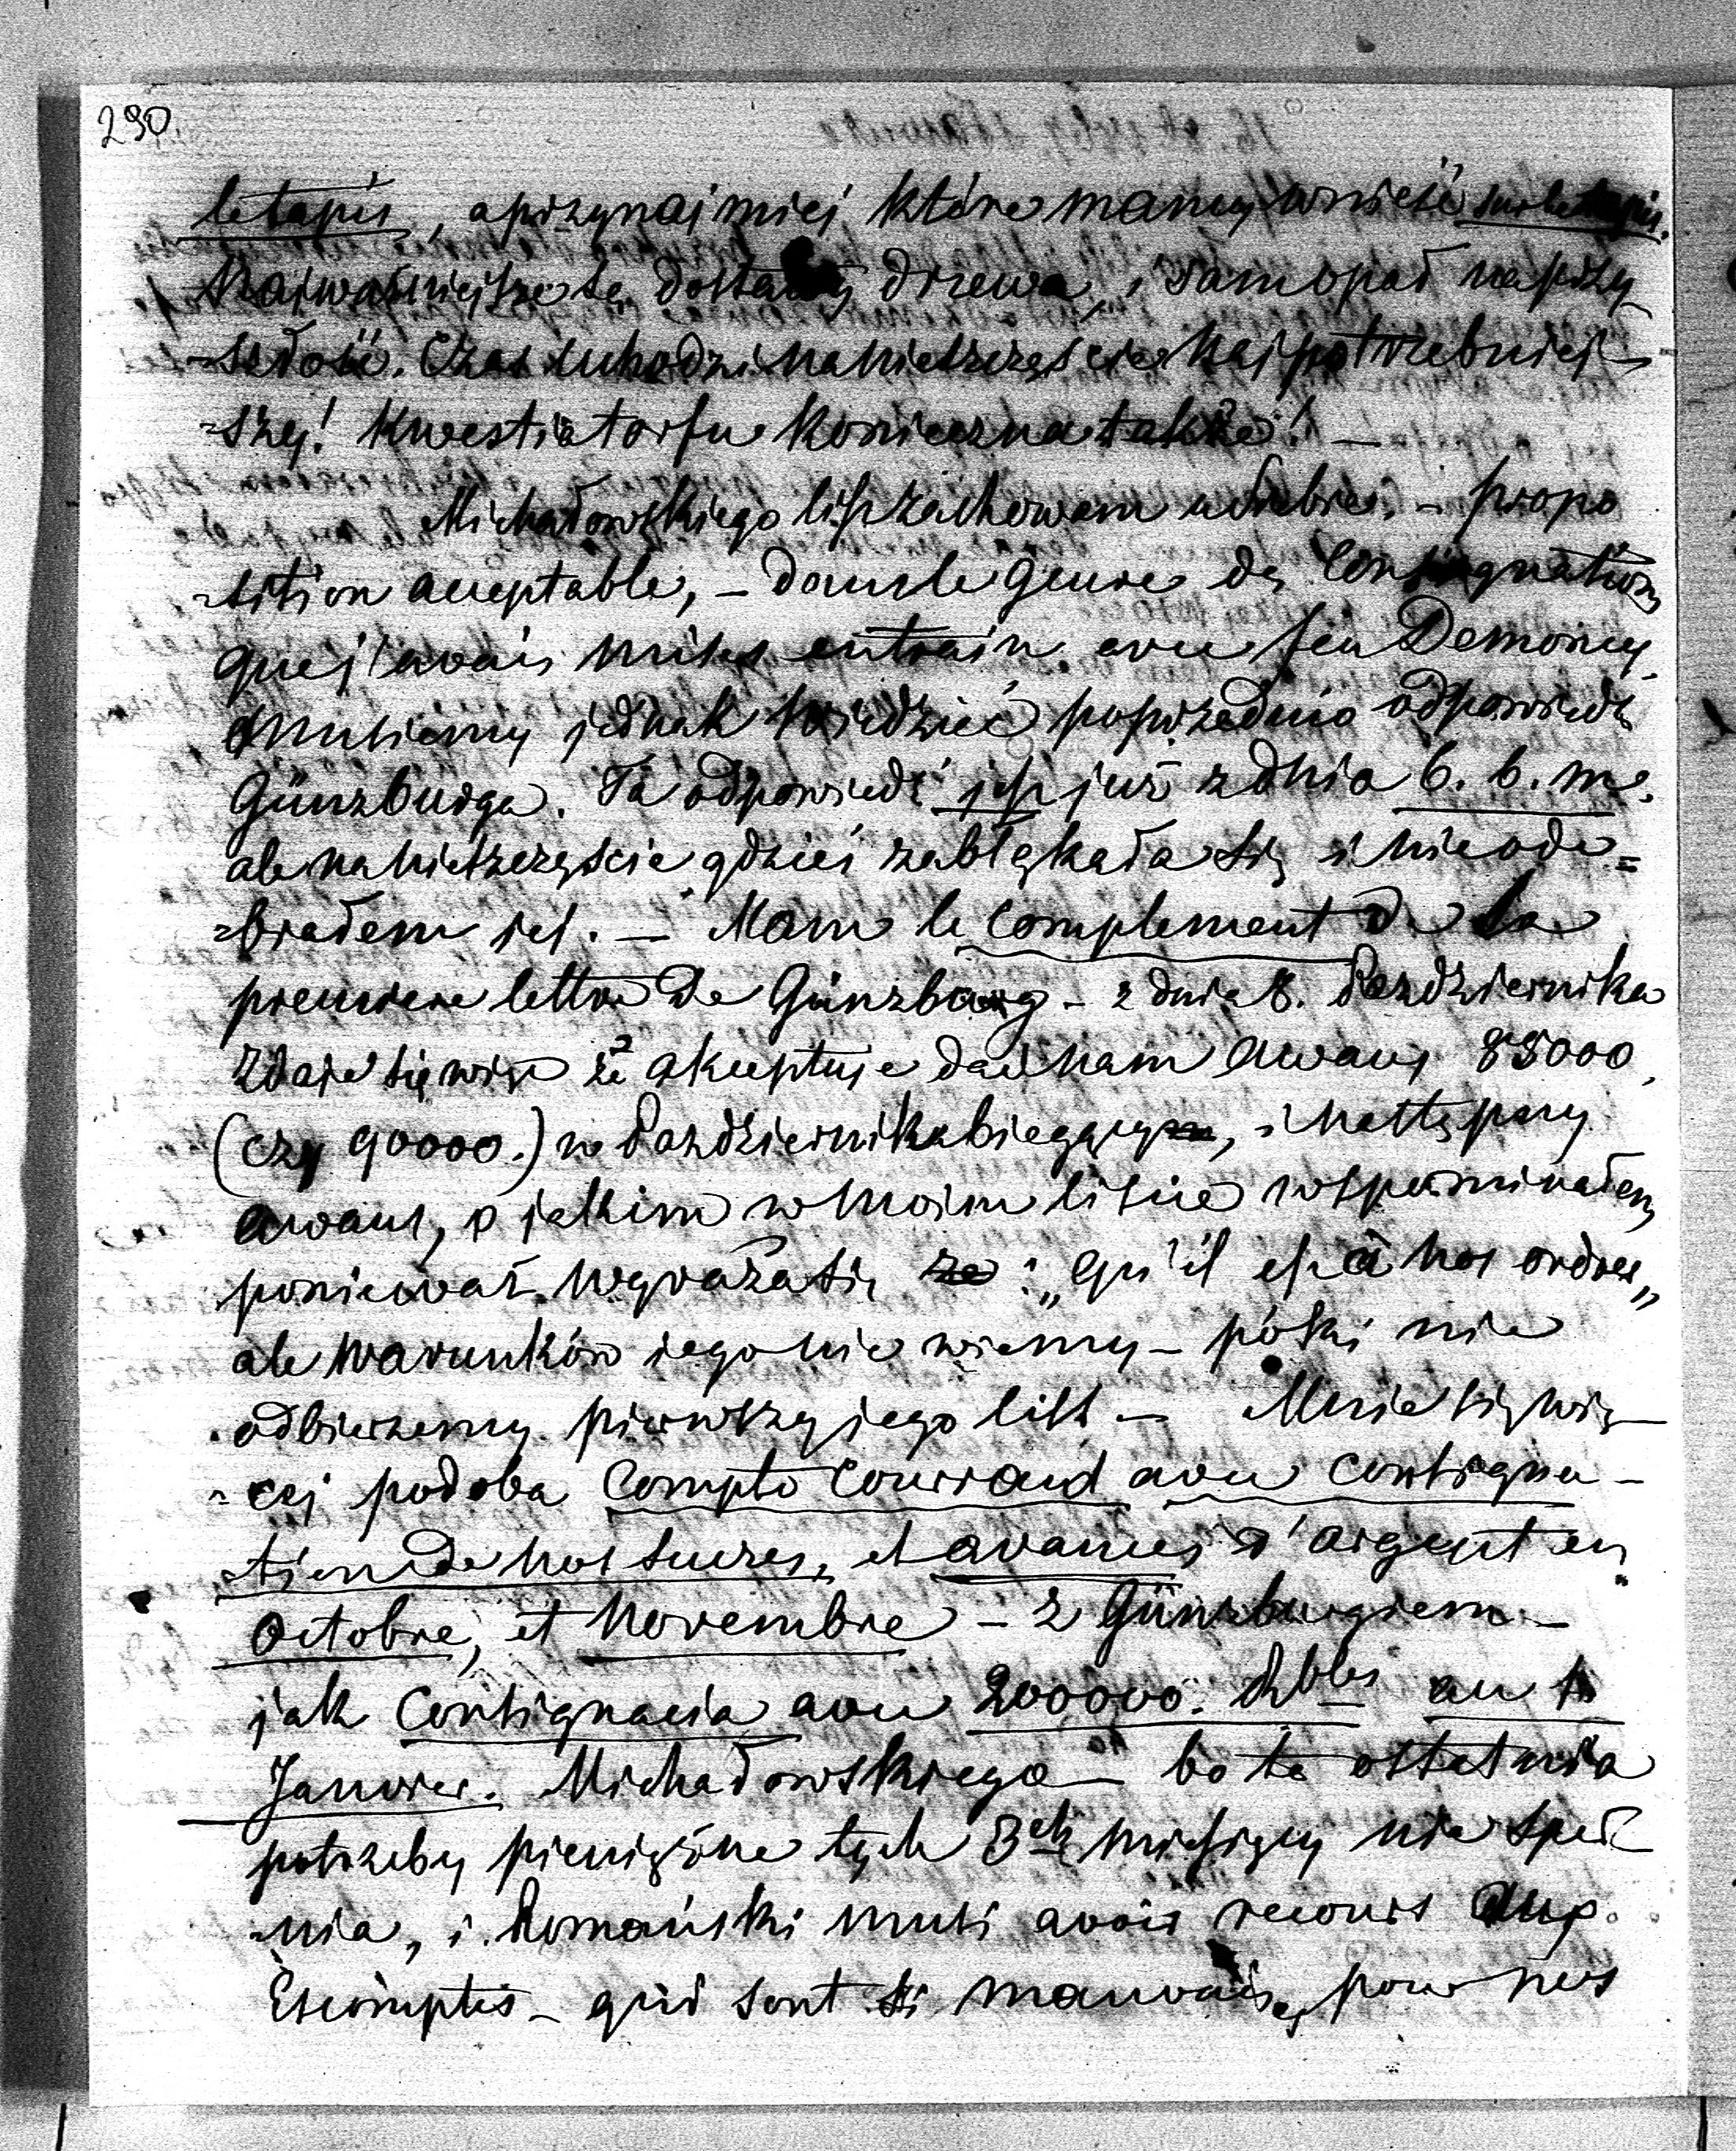 290.
le tapis, aprzynajmiej które mamy wnieść sur le tapis.
Najważniejsze są dostawy drzewa, i sam opał na przy-
-szłość. Czas uchodzi na nieszczęście najpotrzebniej-
-szy! Kwestia torfu konieczna także! —
Michałowskiego list zachowam u siebie. - propo
-sition acceptable, - dans le genre des Consignations
que j'avais mises entrain avec feu Demoncy,
musiemy jednak wiedzieć poprzednio odpowiedź
Günzburga. Ta odpowiedź jest już z dnia 6. b. m.
ale na nieszczęście gdzieś zabłąkała się i nie ode=
=brałem jej. — Mam le complement de la
premiere lettre de Günzburg - z dnia 8. Pazdziernika
Zdaje się więc że akceptuje dać nam awans 85000,
(czy 90000.) w Pazdzierniku bieżącym, i następny
awans, o jakim w moim liście wspominałem,
ponieważ wyraża się : „qu'il est à nos ordres„
ale warunków jego nie wiemy - póki nie
odbierzemy pierwszy jego list. — Mnie się wię-
-cej podoba Compte Courrant avec Consigna-
-tion de nos sucres, et avances d'argent en
Octobre, et Novembre - z Günzburgiem -
jak Consignacia avec 200000. Rbles au 1
Janvier. Michałowskiego - bo ta ostatnia
potrzeby pieniężne tych 3ch miesięcy nie speł-
-nia, i Romański musi avoir recours aux
Escomptes - qui sont si mauvaises pour nos